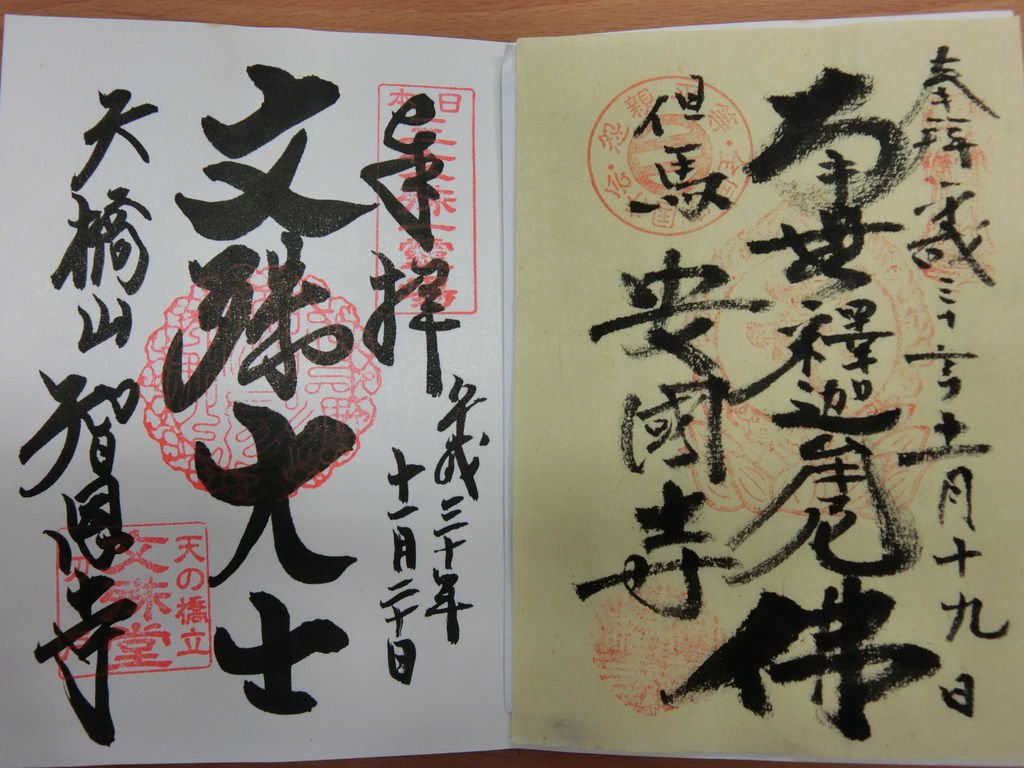 奉拝 平成三十年十一月十九日
南無釋迦牟尼佛
但馬
安國寺
奉拝
平成三十年
十一月二十日
文殊大士
天橋山
智恩寺
日本三文殊一霊場
天の橋立
文殊堂